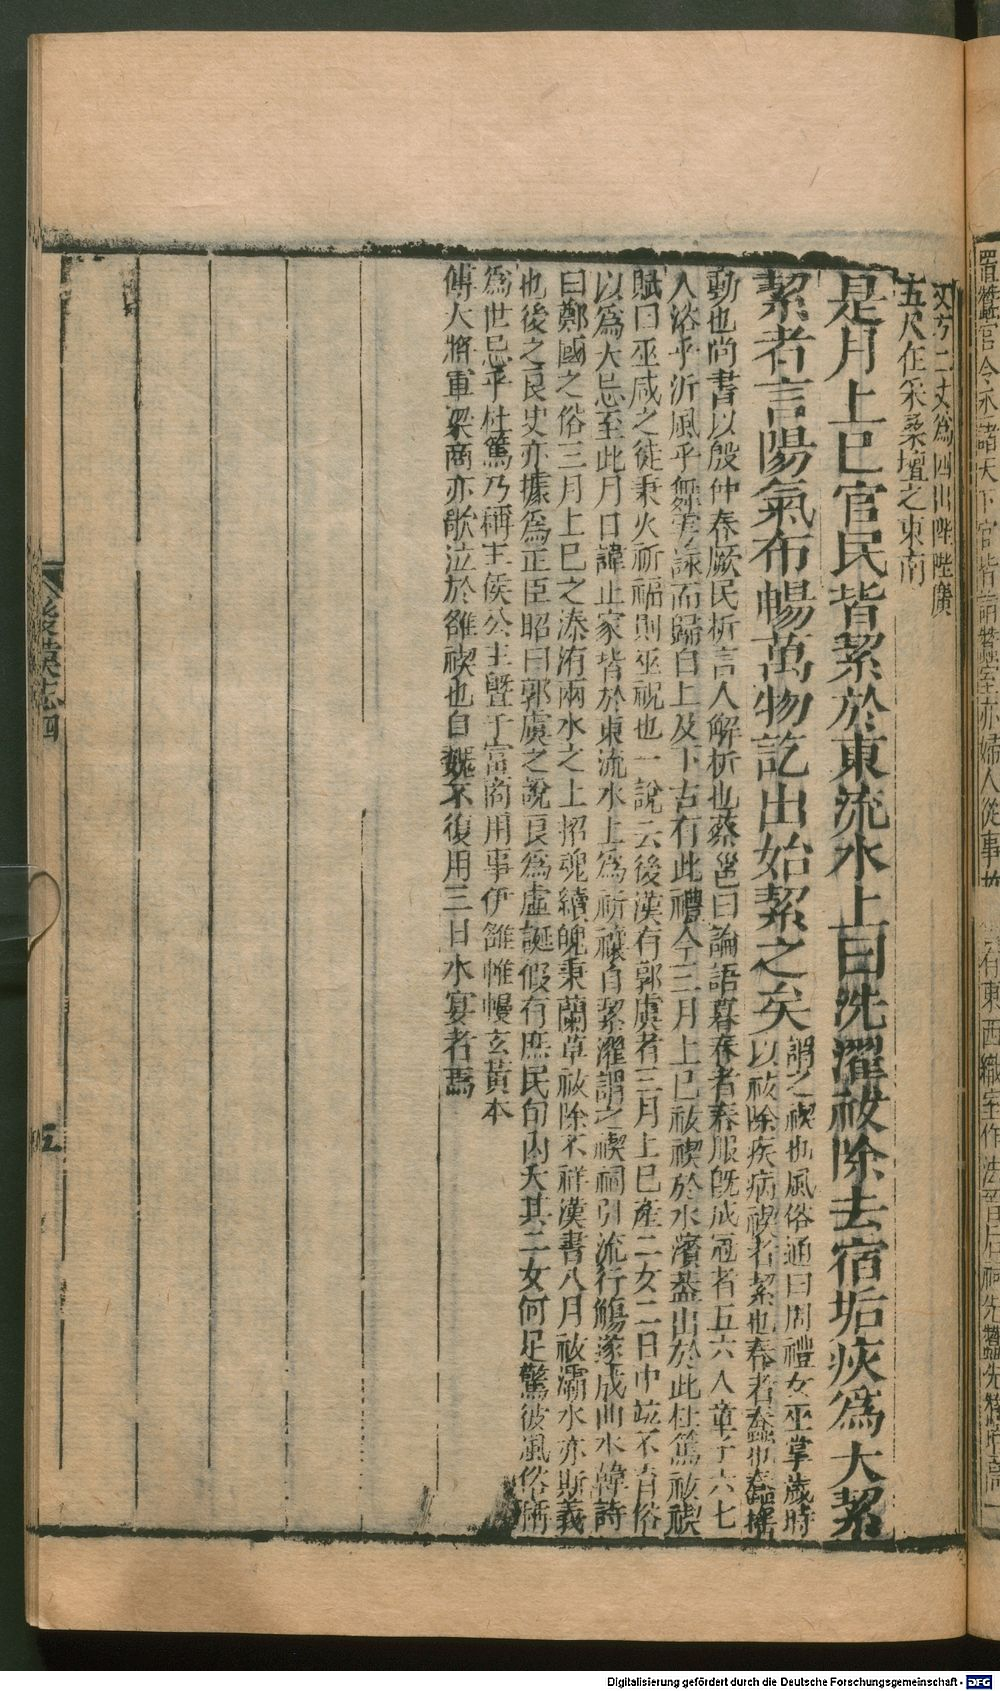 丈方二丈爲四出陛陛廣
五尺在采桑壇之東南
是月上巳官民皆絜於東流水上曰洗濯祓除去宿垢疢爲大絜
絜者言陽氣布暢萬物訖出始絜之矣
謂之禊也風俗通曰周禮女巫掌歲時
以祓除疾病禊者絜也春者蠢也蠢蠢搖
動也尚書以殷仲春厥民析言人解析也蔡邕曰論語暮春者春服旣成冠者五六人童子六七
人浴乎沂風乎舞雩詠而歸自上及下古有此禮今三月上巳祓禊於水濱蓋出於此杜篤祓禊
賦曰巫咸之徒秉火祈福則巫祝也一說云後漢有郭虞者三月上巳產二女二日中竝不育俗
以爲大忌至此月日諱止家皆於東流水上爲祈禳自絜濯謂之禊祠引流行觴遂成曲水韓詩
曰鄭國之俗三月上巳之溱洧兩水之上招魂續魄秉蘭草祓除不祥漢書八月祓灞水亦斯義
也後之良史亦據爲正臣昭曰郭虞之說良爲虛誕假有庶民旬內夭其二女何足驚彼風俗稱
爲世忌乎杜篤乃稱王侯公主曁于富商用事伊雒帷幔玄黃本
傳大將軍梁商亦歌泣於雒禊也自魏不復用三日水宴者焉
後漢志四
五
置蠶官令丞諸天下官皆詣蠶室亦婦人從事故
有東西織室作法
Digitalisierung gefördert durch die Deutsche Forschungsgemeinschaft - DFG